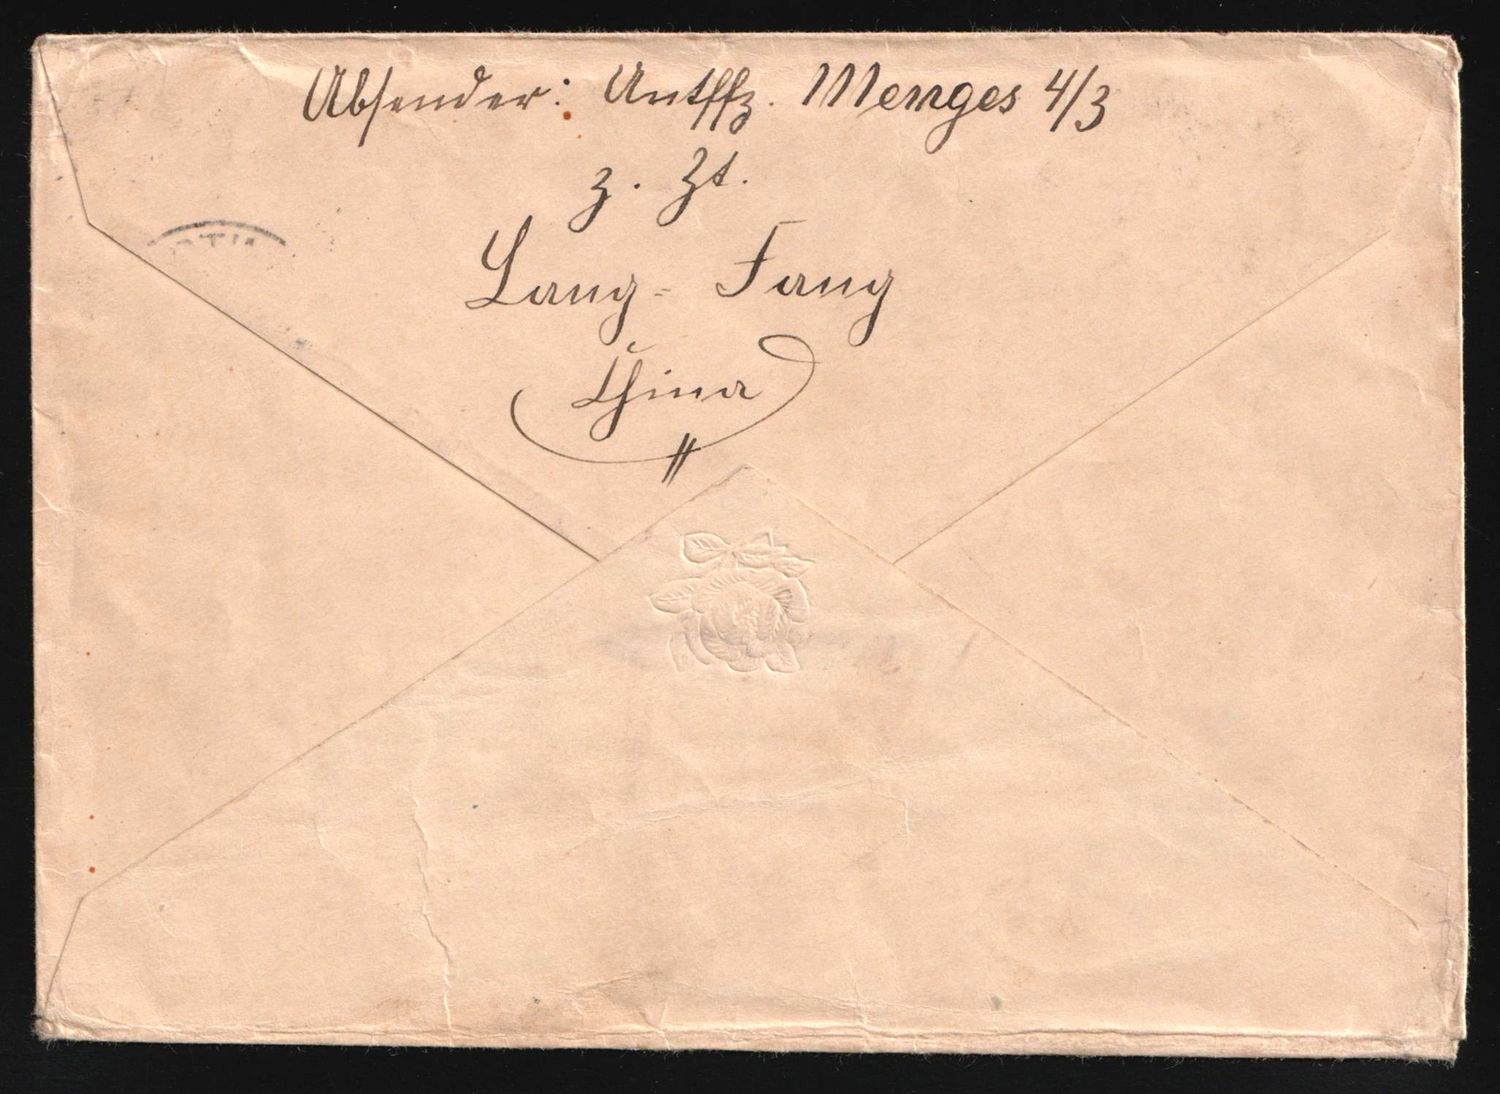 Absender: Untffz. Menges 4/3
z. Zt.
Lang-Fang
China